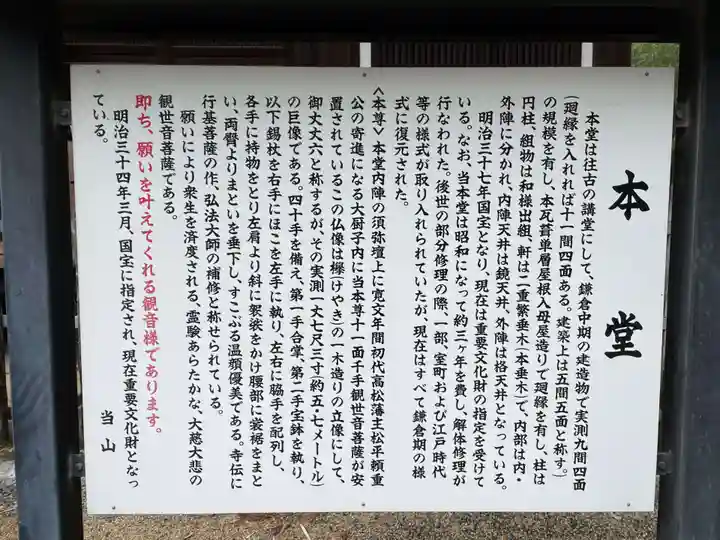 本堂
本堂は往古の講堂にして、鎌倉中期の建造物で実測九間四面
(廻縁を入れれば十一間四面ある。建築上は五間五面と称す。)
の規模を有し、本瓦葺単層屋根入母屋造りで廻縁を有し、柱は
円柱、組物は和様出組、軒は二重繁垂木(本垂木)て、内部は内・
外陣に分かれ、内陣天井は鏡天井、外陣は格天井となっている。
明治三十七年国宝となり、現在は重要文化財の指定を受けて
いる。なお、当本堂は昭和になって約三ヶ年を費し、解体修理が
行なわれた。後世の部分修理の際、一部、室町および江戸時代
等の様式が取り入れられていたが、現在はすべて鎌倉期の様
式に復元された。
<本尊>本堂内陣の須弥壇上に寛文年間初代高松藩主松平頼重
公の寄進になる大厨子内に当本尊十一面千手観世音菩薩が安
置されているこの仏像は欅(けやき)の一木造りの立像にして、
御丈丈六と称するが、その実測一丈七尺三寸(約五・七メートル)
の巨像である。四十手を備え、第一手合掌、第二手宝鉢を執り、
以下錫杖を右手にほこを左手に執り、左右に脇手を配列し、
各手に持物をとり左肩より斜に袈裟をかけ腰部に裳裾をまと
い、両臂よりまといを垂下し、すこぶる温顔優美である。寺伝に
行基菩薩の作、弘法大師の補修と称せられている。
願いにより衆生を済度される、霊験あらたかな、大慈大悲の
観世音菩薩である。
即ち、願いを叶えてくれる観音様であります。
明治三十四年三月、国宝に指定され、現在重要文化財となっ
ている。
当山